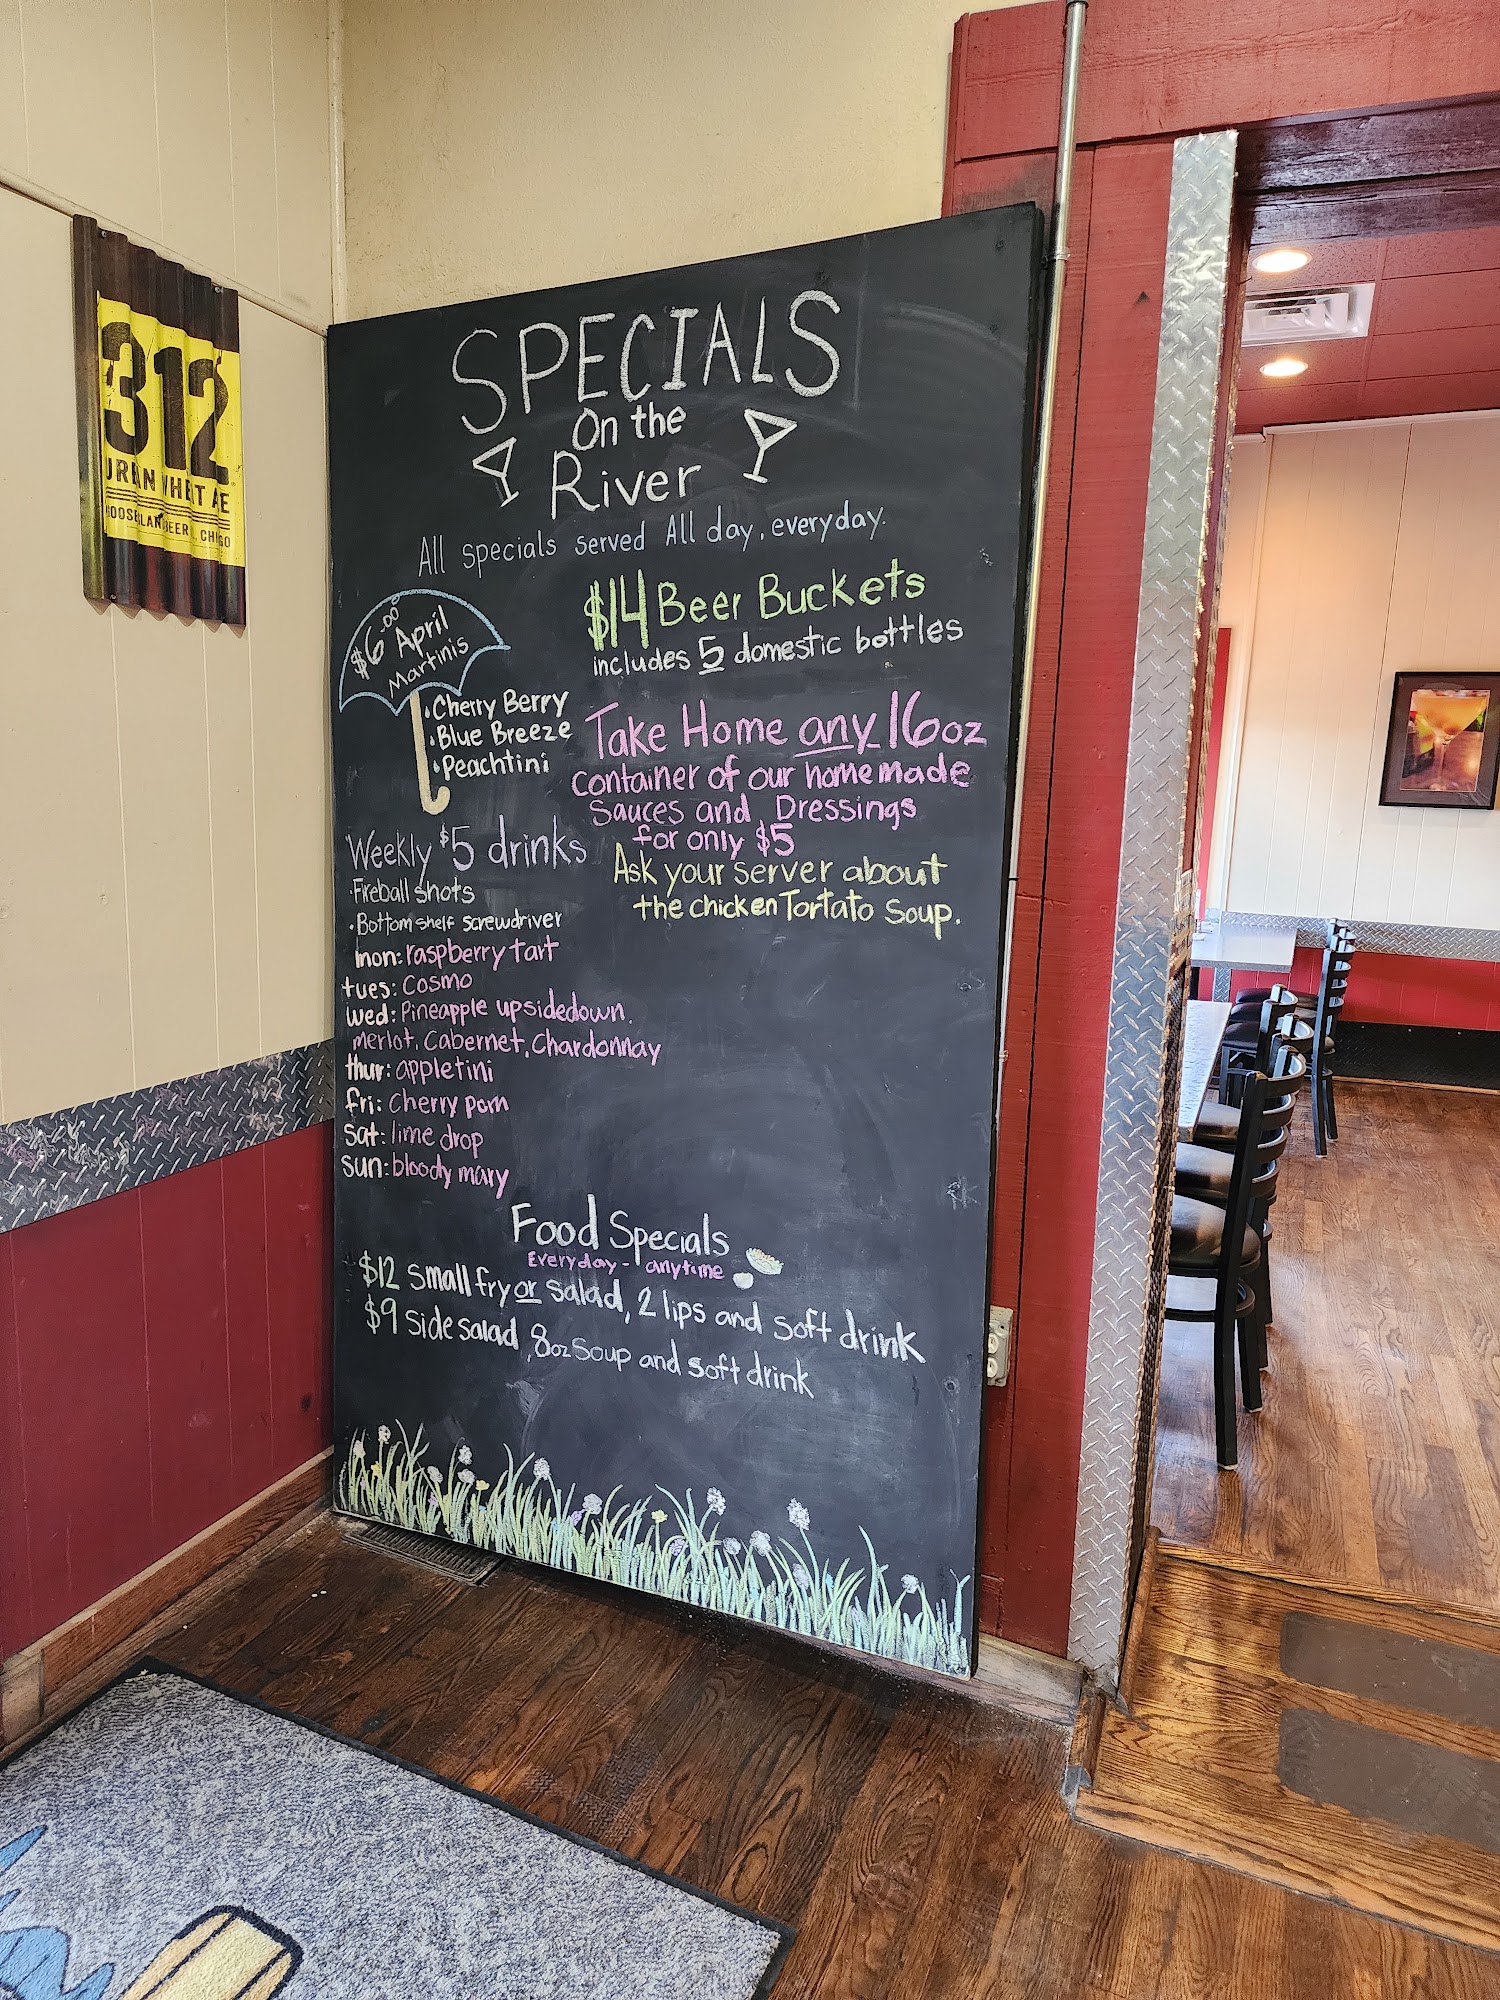 312
URBAN WHEAT ALE
GOOSE ISLAND BEER CO., CHICAGO
SPECIALS
On the
River
All specials served All day, everyday.
$6.00 April
Martinis
• Cherry Berry
• Blue Breeze
• Peachtini
$14 Beer Buckets
includes 5 domestic bottles
Take Home any 16oz
container of our homemade
Sauces and Dressings
for only $5
Ask your server about
the chicken Tortato Soup.
Weekly $5 drinks
• Fireball shots
• Bottom shelf screwdriver
mon: raspberry tart
tues: Cosmo
wed: Pineapple upsidedown.
merlot, Cabernet, Chardonnay
thur: appletini
fri: Cherry pom
sat: lime drop
sun: bloody mary
Food Specials
Everyday - anytime
$12 small fry or salad, 2 lips and soft drink
$9 side salad, 8oz soup and soft drink